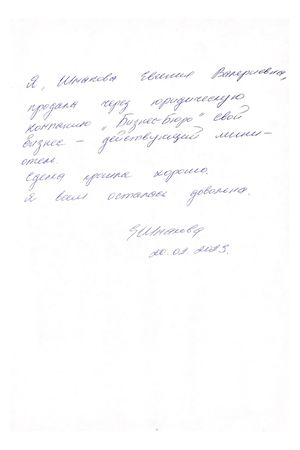 Я, Шнакова Евгения Валериевна,
продала через юридическую
компанию „Бизнес-Бюро" свой
бизнес – действующий мини-
отель.
Сделка прошла хорошо.
Я всем осталась довольна.
20.02.2023.